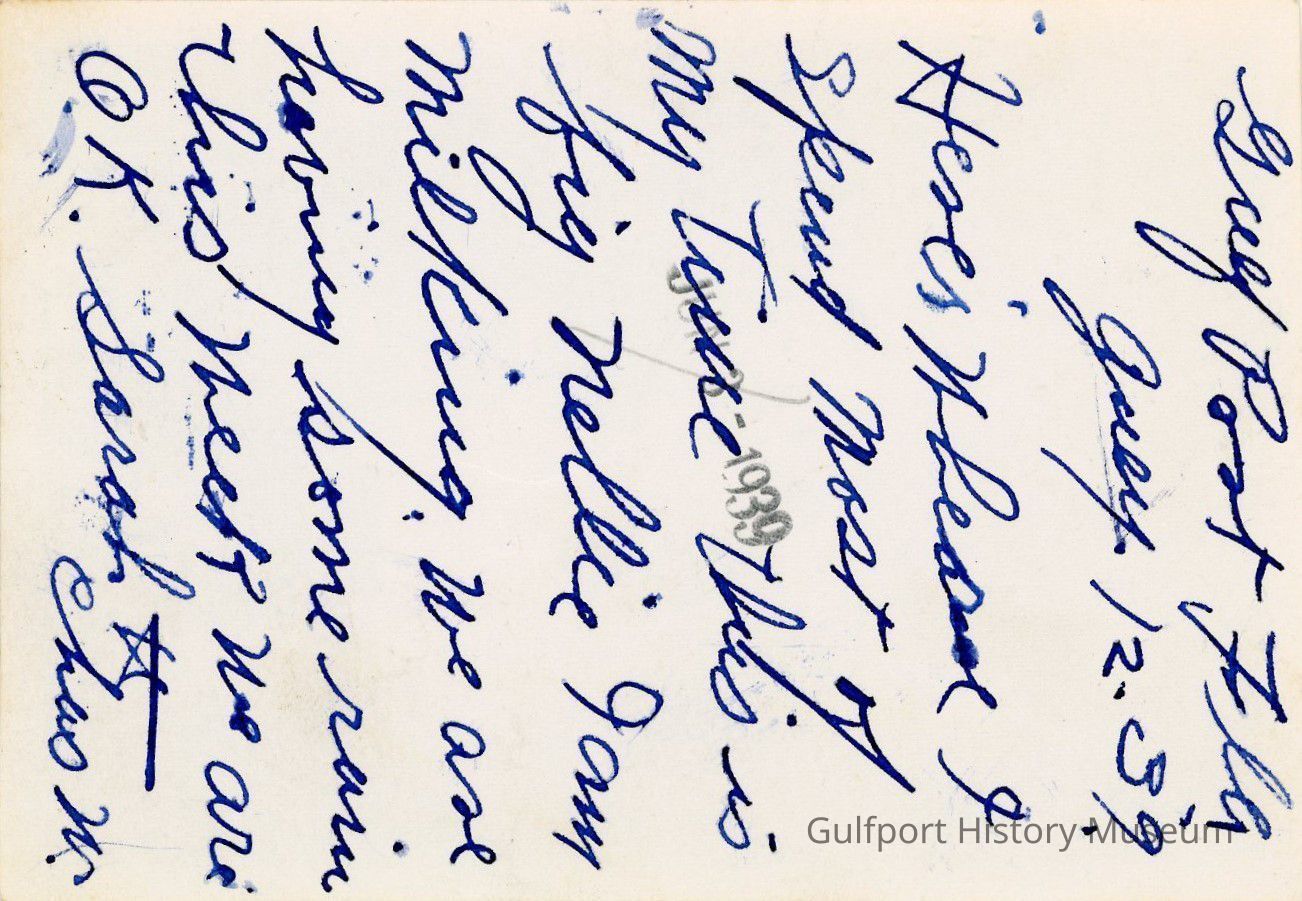 Gulf Port Fla
July. 12. 39
Here's Where I
Spend Most of
My Time This is
big Nellie I am
Milking. We are
having some rain
this Week We are
OK. Sarah &
Chas W.
JUN 3 - 1939
Gulfport History Museum